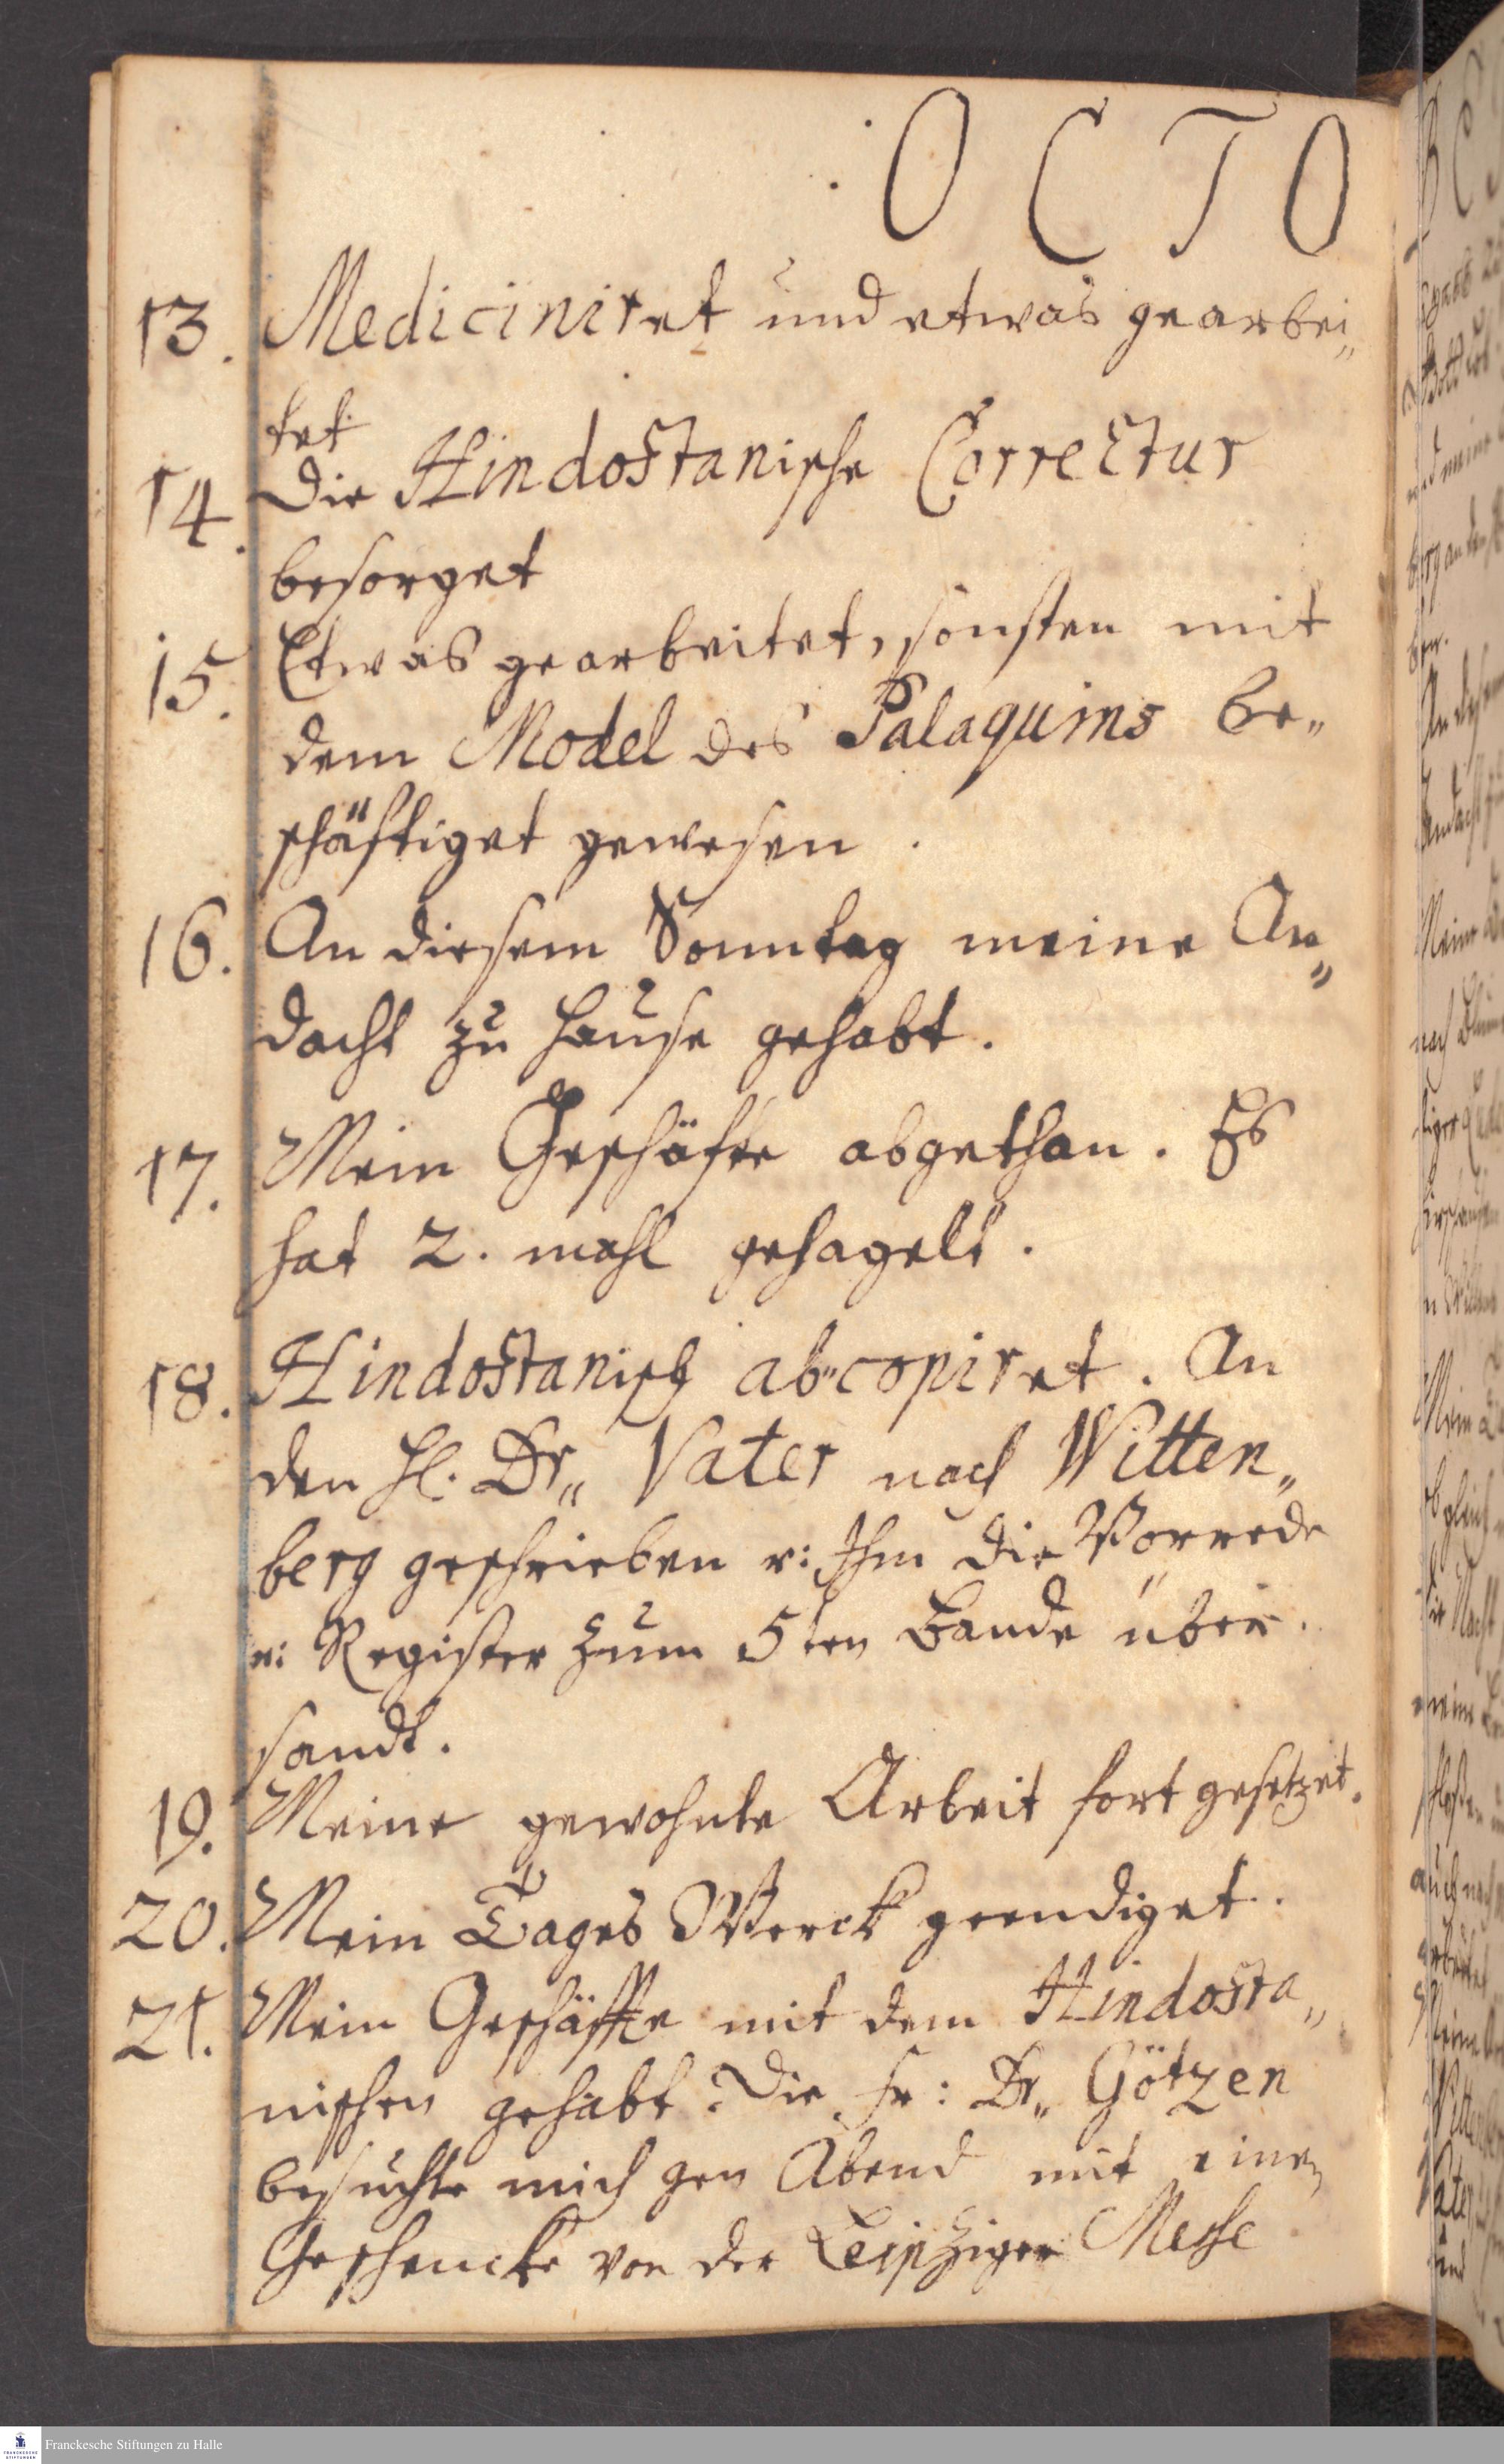 OCTO
13. Mediciniret und etwas gearbei„
tet
14. Die Hindostanische Correctur
besorget
15. Etwas gearbeitet, sonsten mit
dem Model des Palaquins be„
schäftiget gewesen.
16. An diesem Sonntag meine An„
dacht zu Hause gehabt.
17. Mein Geschäfte abgethan. Es
hat 2. mahl gehagelt.
18. Hindostanisch ab-copiret. An
den H. Dr„ Vater nach Witten„
berg geschrieben u: Ihm die Vorrede
u: Register zum 5ten Bande über.
sandt.
19. Meine gewohnte Arbeit fort gesetzet.
20. Mein Tages Werck geendiget.
21. Mein Geschäffte mit dem Hindosta„
nischen gehabt. Die Fr: Dr„ Götzen
besuchte mich gen Abend mit einem
Geschencke von der Leipziger Messe
Franckesche Stiftungen zu Halle